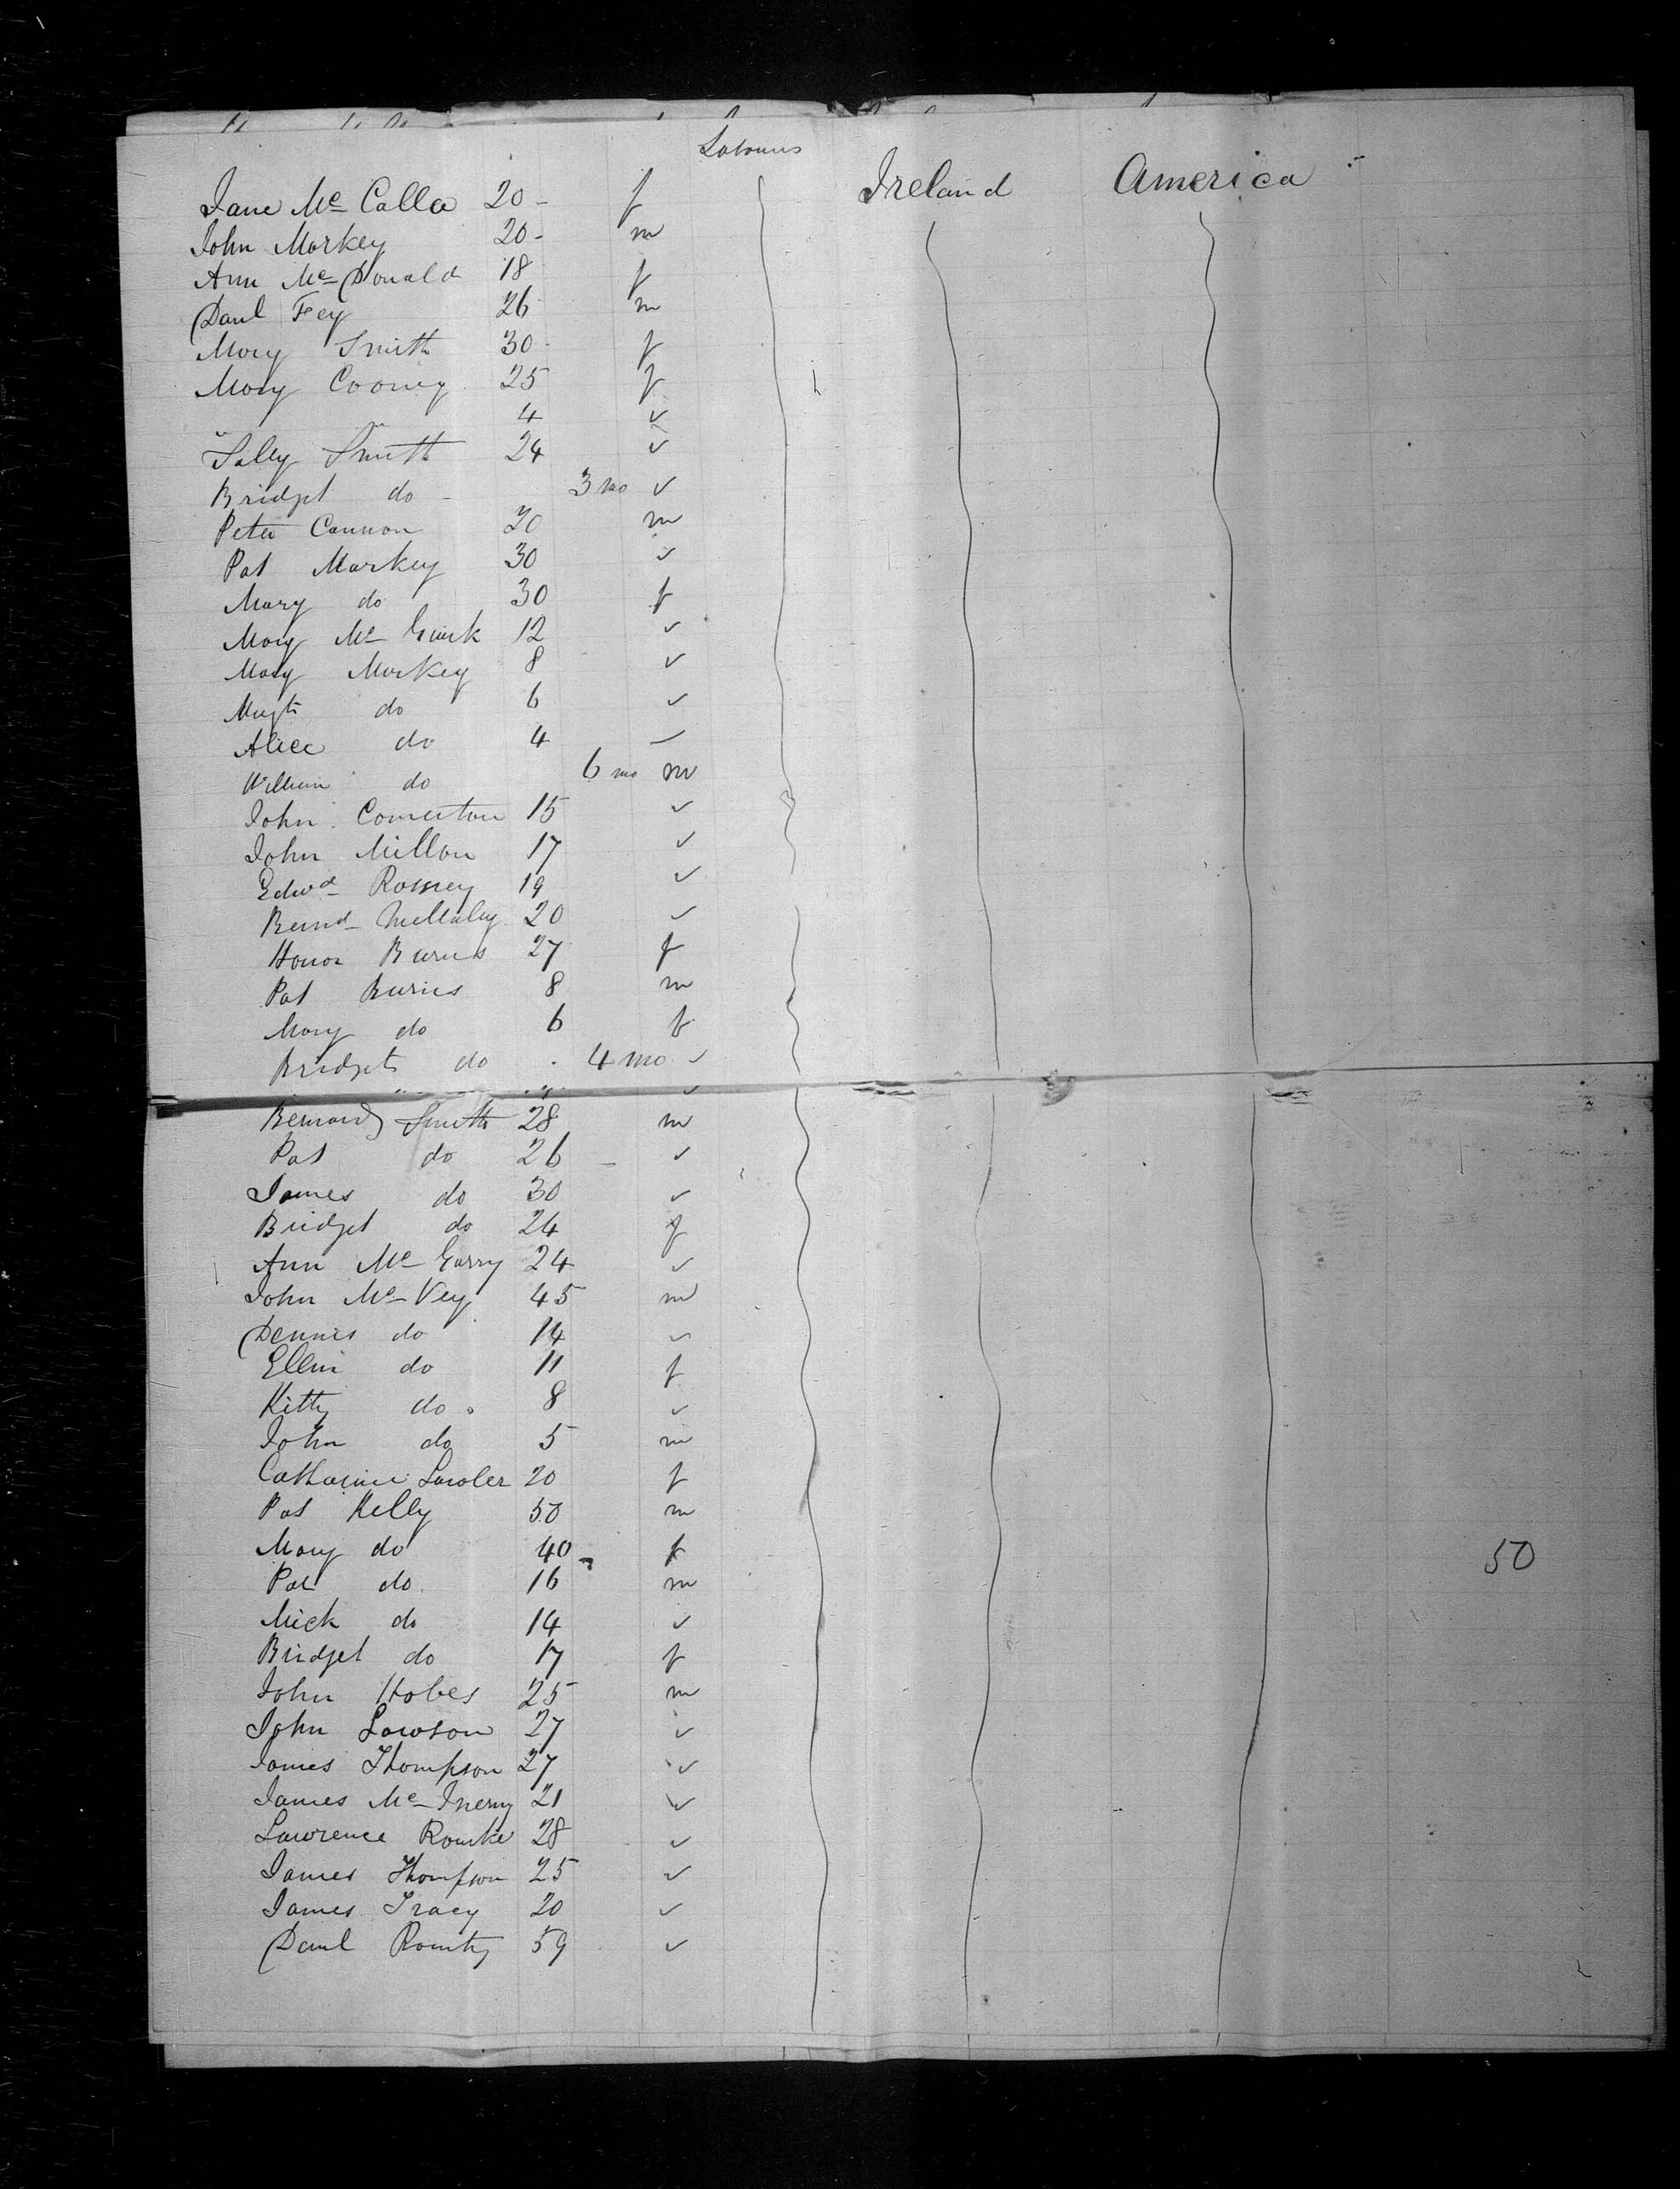 Labourers
Jane Mc Calla 20 - f Ireland America
John Markey 20 - m
Ann Mc Donald 18 f
Paul Fey 26 m
Mary Smith 30 f
Mary Cooney 25 f
" " 4 ✓
Sally Smith 24 ✓
Bridget do - 3 mo ✓
Peter Cannon 20 m
Pat Markey 30 ✓
Mary do 30 f
Mary Mc Guirk 12 ✓
Mary Markey 8 ✓
Magt do 6 ✓
Alice do 4 ✓
William do 6 mo m
John Comerton 15 ✓
John Millon 17 ✓
Edwd 19 ✓
Bernd 20 ✓
Honor Burns 27 f
Pat Burns 8 m
Mary do 6 f
Bridget do 4 mo ✓
Bernard Smith 28 m
Pat do 26 ✓
James do 30 ✓
Bridget do 24 f
Ann Mc Garry 24 ✓
John Mc Vey 45 m
Dennis do 14 ✓
Ellin do 11 f
Kitty do 8 ✓
John do 5 m
Catharine Lawler 20 f
Pat Kelly 50 m
Mary do 40 f 50
Pat do 16 m
Mick do 14 ✓
Bridget do 17 f
John Hobes 25 m
John Lawson 27 ✓
James Thompson 27 ✓
James Mc Inerny 21 ✓
Lawrence Rourke 28 ✓
James Thompson 25 ✓
James Tracy 20 ✓
Paul 59 ✓